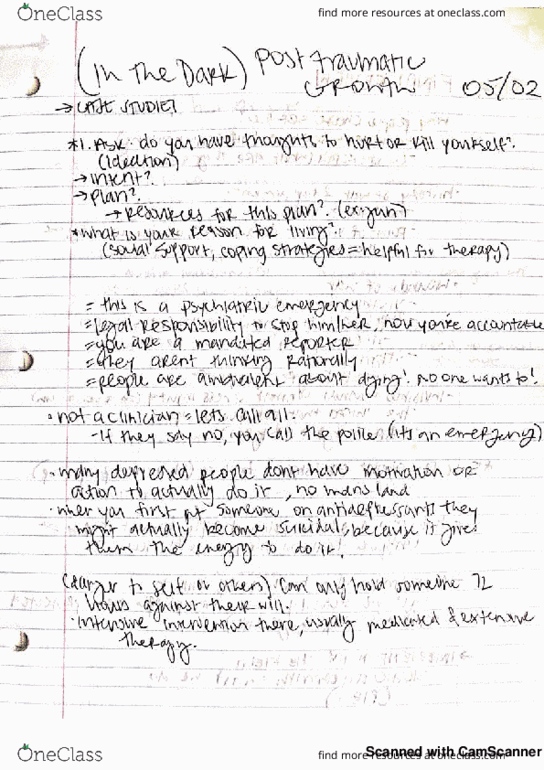 OneClass
find more resources at oneclass.com
(In the Dark) Post traumatic
Growth 05/02
→ CASE STUDIES
*1. Ask: do you have thoughts to hurt or kill yourself?
(Ideation)
→ intent?
→ plan?
→ resources for this plan? (ex: gun)
* what is your reason for living?
(social support, coping strategies = helpful for therapy)
= this is a psychiatric emergency
= legal responsibility to stop him/her, now you're accountable
= you are a mandated reporter
= they arent thinking rationally
= people are ambivalent about dying! no one wants to!
• not a clinician = lets call
- If they say no, you call the police (its an emergency)
• many depressed people dont have motivation or
action to actually do it, no mans land
• when you first put someone on antidepressants they
might actually become suicidal, because it gives
them the energy to do it!
(danger to self or others) Can only hold someone 72
hours against their will.
• intensive intervention there, usually medicated & extensive
therapy.
OneClass
find more resources at oneclass.com
Scanned with CamScanner